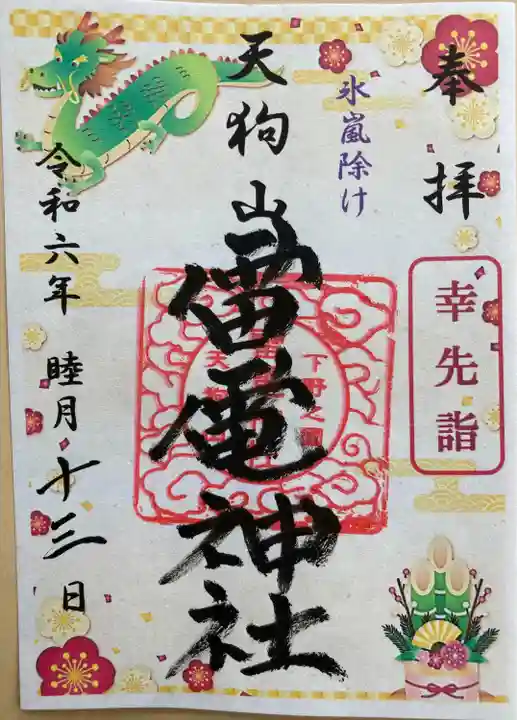 奉拝
幸先詣
氷嵐除け
天狗山
雷電神社
下野之國
令和六年 睦月十三日